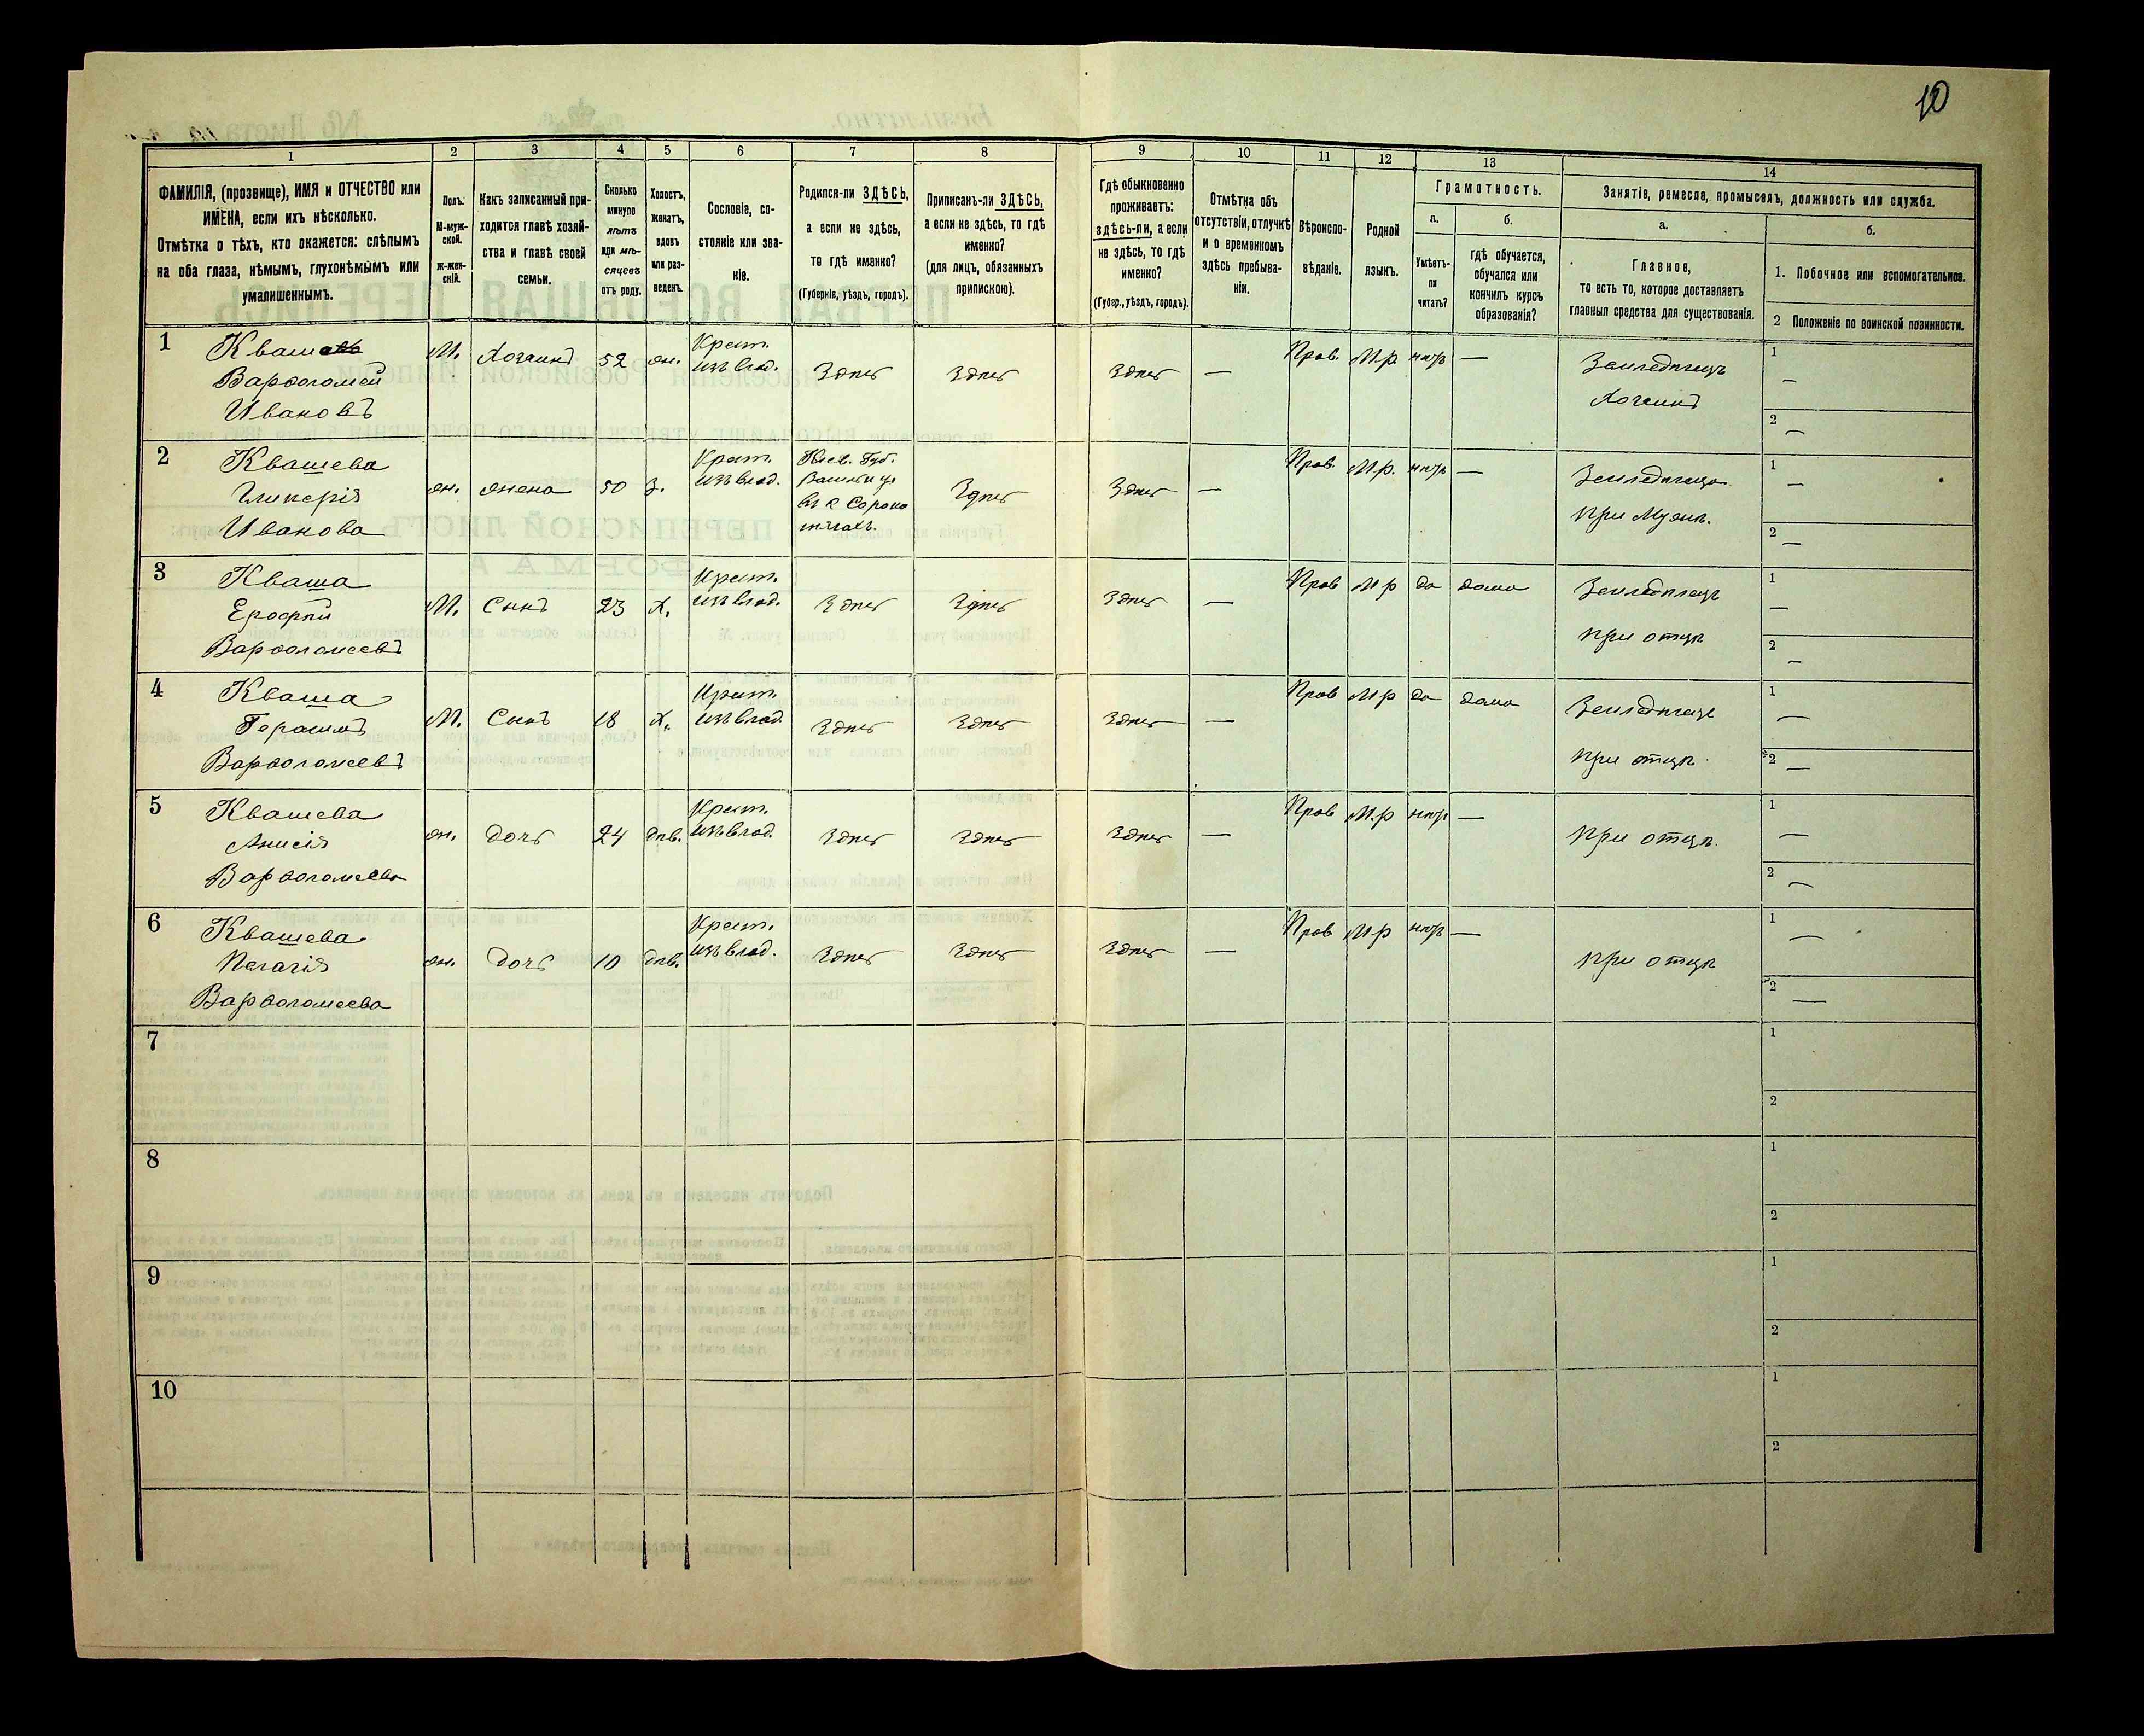 10
1 2 3 4 5 6 7 8 9 10 11 12 13 14
ФАМИЛІЯ, (прозвище), ИМЯ и ОТЧЕСТВО или
ИМЕНА, если ихъ нѣсколько.
Отмѣтка о тѣхъ, кто окажется: слѣпымъ
на оба глаза, нѣмымъ, глухонѣмымъ или
умалишеннымъ.
Полъ.
М-муж-
ской.
ж-жен-
скій.
Какъ записанный при-
ходится главѣ хозяй-
ства и главѣ своей
семьи.
Сколько
минуло
лѣтъ
или мѣ-
сяцевъ
отъ роду.
Холостъ,
женатъ,
вдовъ
или раз-
веденъ.
Сословіе, со-
стояніе или зва-
ніе.
Родился-ли ЗДѢСЬ,
а если не здѣсь,
то гдѣ именно?
(Губернія, уѣздъ, городъ).
Приписанъ-ли ЗДѢСЬ,
а если не здѣсь, то гдѣ
именно?
(для лицъ, обязанныхъ
припискою).
Гдѣ обыкновенно
проживаетъ:
здѣсь-ли, а если
не здѣсь, то гдѣ
именно?
(Губер., уѣздъ, городъ).
Отмѣтка объ
отсутствіи, отлучкѣ
и о временномъ
здѣсь пребыва-
ніи.
Вѣроиспо-
вѣданіе.
Родной
языкъ.
Грамотность.
а.
Умѣетъ-
ли
читать?
б.
гдѣ обучается,
обучался или
кончилъ курсъ
образованія?
Занятія, ремесло, промыселъ, должность или служба.
а.
Главное,
то есть то, которое доставляетъ
главныя средства для существованія.
б.
1. Побочное или вспомогательное.
2 Положеніе по воинской повинности.
1
Кваша
Варѳоломей
Ивановъ
М.
Хозяинъ
52
жн.
Крест.
изъ влад.
Здѣсь
Здѣсь
Здѣсь
—
Прав.
М.р.
нѣтъ
—
Земледѣлецъ
Хозяинъ
1
—
2
—
2
Квашева
Гликерія
Иванова
жн.
жена
50
З.
Крест.
изъ влад.
Кіев. Губ.
въ с Сороко
тягахъ.
Здѣсь
Здѣсь
—
Прав.
М.р.
нѣтъ
—
при Мужѣ.
1
—
2
—
3
Кваша
Ерофѣй
Варѳоломеевъ
М.
Сынъ
23
Х.
Крест.
изъ влад.
Здѣсь
Здѣсь
Здѣсь
—
Прав
М р
да
дома
Земледѣлецъ
при отцѣ
1
—
2
—
4
Кваша
Герасимъ
Варѳоломеевъ
М.
Сынъ
18
Х.
Крест.
изъ влад.
Здѣсь
Здѣсь
Здѣсь
—
Прав
М р
да
дома
Земледѣлецъ
при отцѣ
1
—
2
—
5
Квашева
Анисія
Варѳоломеева
жн.
дочь
24
дѣв.
Крест.
изъ влад.
Здѣсь
Здѣсь
Здѣсь
—
Прав
М.р
нѣтъ
—
при отцѣ.
1
—
2
—
6
Квашева
Пелагія
Варѳоломеева
жн.
дочь
10
дѣв.
Крест.
изъ влад.
Здѣсь
Здѣсь
Здѣсь
—
Прав
М р
нѣтъ
—
при отцѣ
1
—
2
—
7
1
2
8
1
2
9
1
2
10
1
2